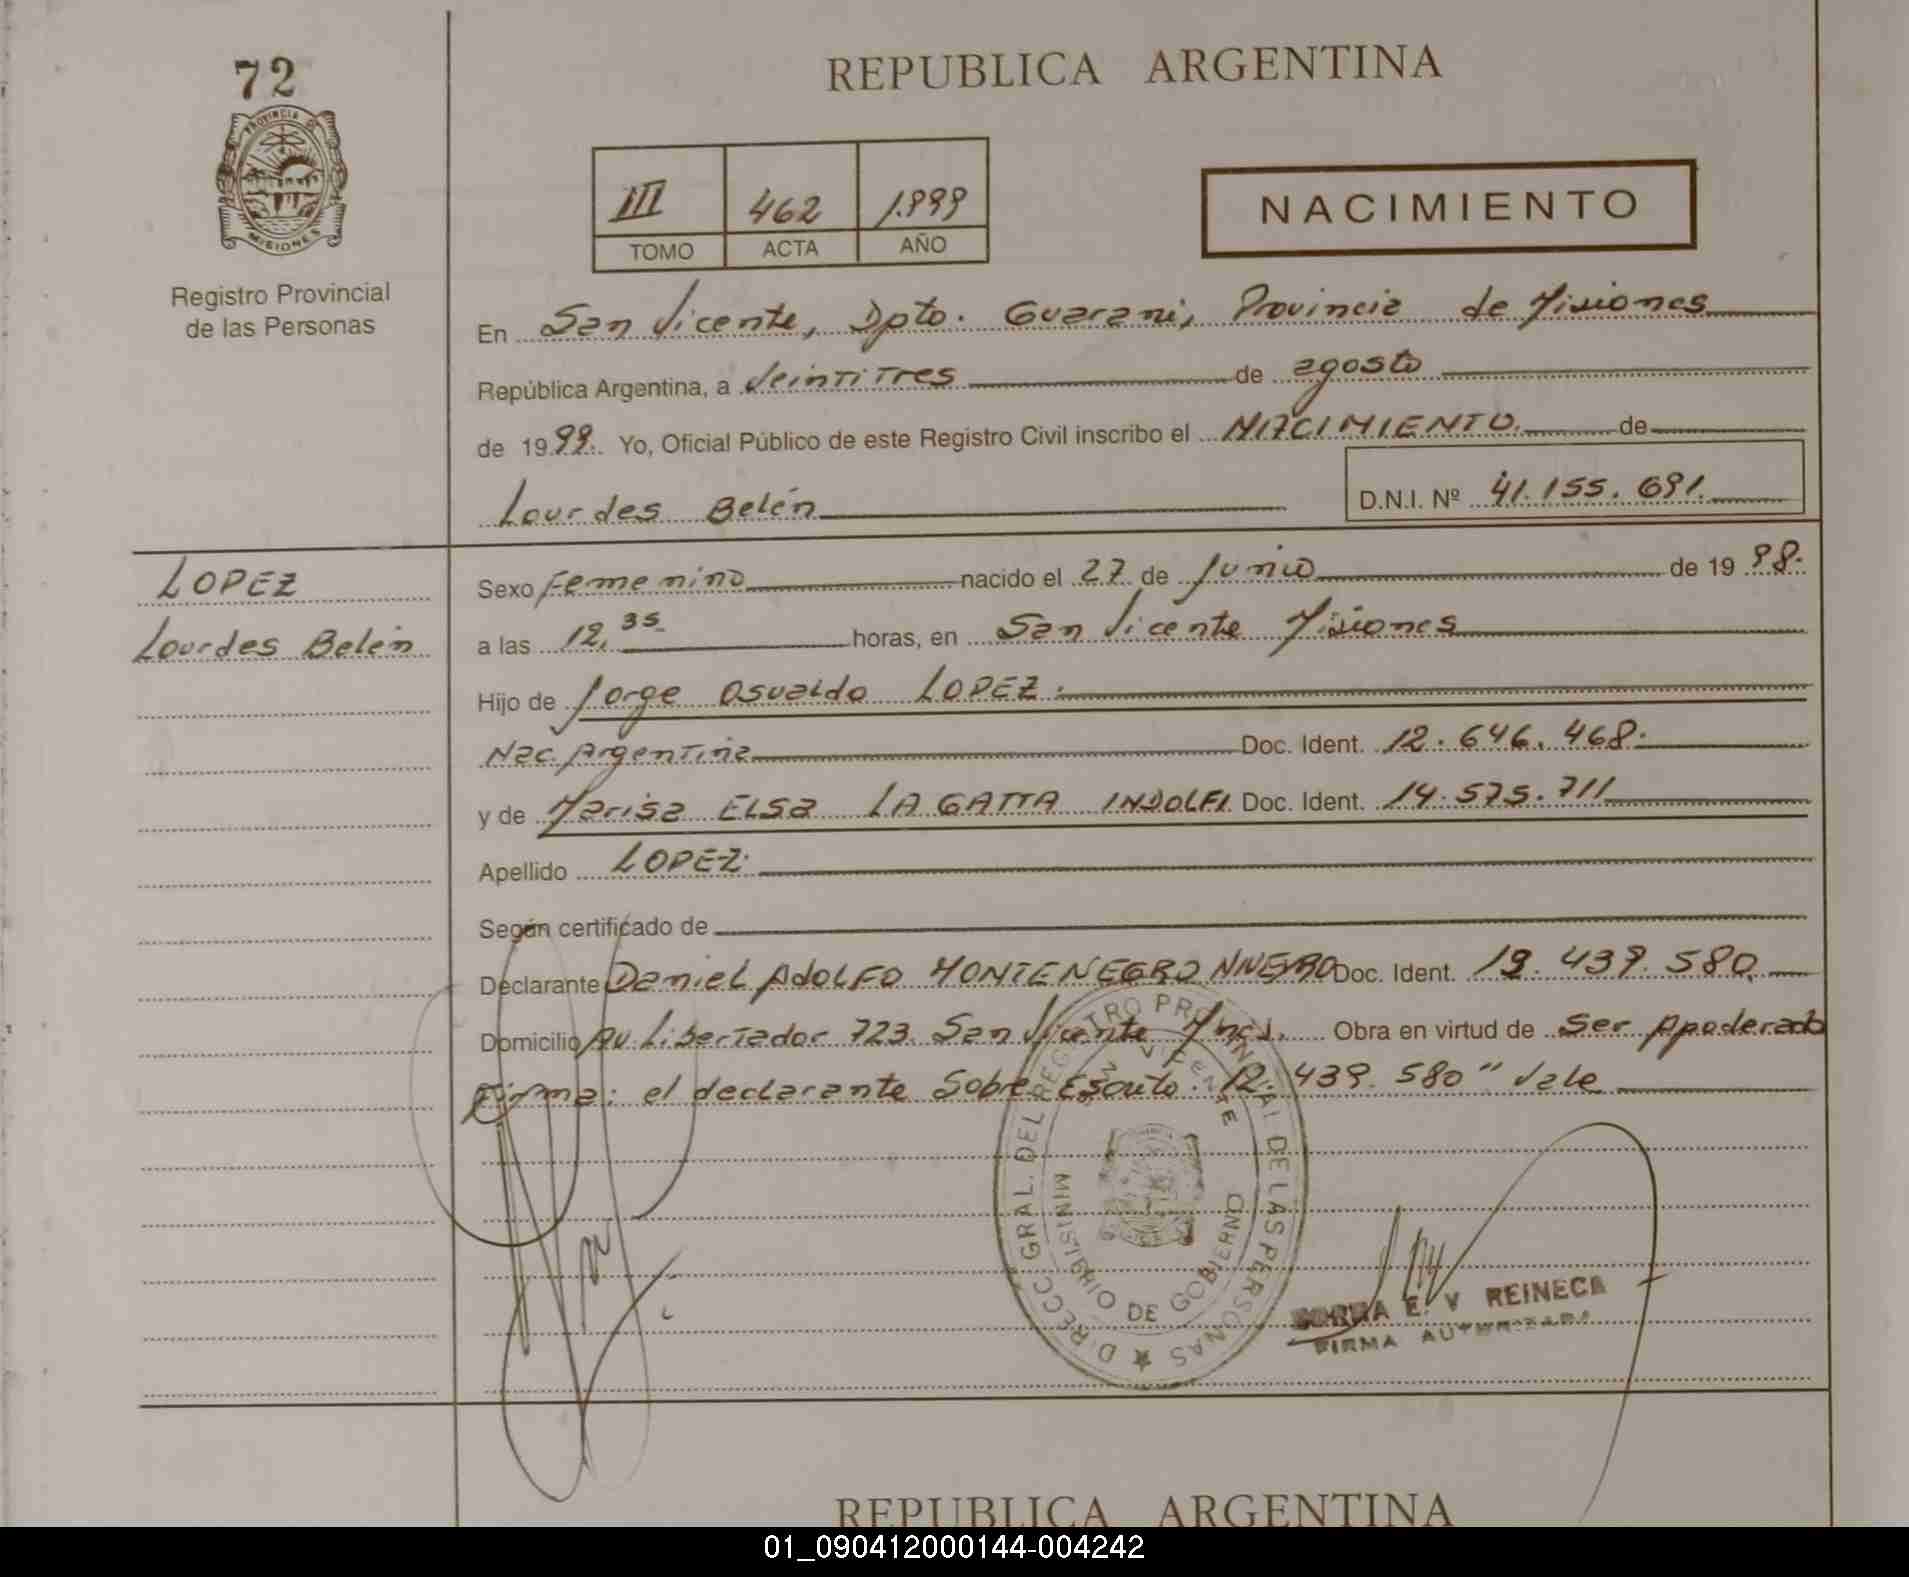 72
REPUBLICA ARGENTINA
PROVINCIA DE MISIONES
Registro Provincial
de las Personas
III 462 1.999
TOMO ACTA AÑO
NACIMIENTO
En San Vicente, Dpto. Guarani, Provincia de Misiones
República Argentina, a Veintitres de agosto
de 1999. Yo, Oficial Público de este Registro Civil inscribo el NACIMIENTO. de
Lourdes Belén D.N.I. Nº 41.155.691.
LOPEZ
Lourdes Belén
Sexo Femenino nacido el 27 de Junio de 1998.
a las 12,35 horas, en San Vicente Misiones
Hijo de Jorge Osvaldo LOPEZ.
Nac. Argentina Doc. Ident. 12.646.468.
y de Marisa ELSa LA GATTA INDOLFI Doc. Ident. 14.575.711
Apellido LOPEZ.
Según certificado de
Declarante Daniel AdOLFO MONTENEGRO Doc. Ident. 439.580
Domicilio Av. Libertador 723. San Vicente Mnes. Obra en virtud de Ser Apoderado
Firma: el declarante Sobre 439.580" Vale
DIRECC. GRAL. DEL REGISTRO PROVINCIAL DE LAS PERSONAS
SAN VICENTE
MINISTERIO DE GOBIERNO
E. V REINECA
FIRMA AUTORIZADA
REPUBLICA ARGENTINA
01_090412000144-004242